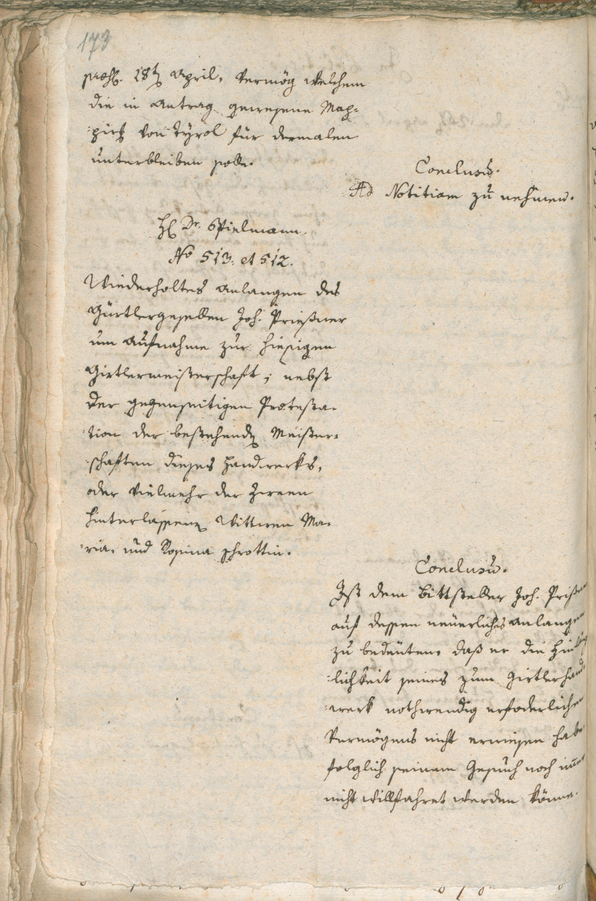 173
praes. 28t April, vermög welchem
die in Antrag gewesene Map-
pirung von Tyrol für dermalen
unterbleiben solle.
Conclusum.
Ad Notitiam zu nehmen.
H. Dr. Spielmann.
No 513. et 512.
Wiederholtes Anlangen des
Gürtlergesellen Joh. Prießner
um Aufnahme zur hiesigen
Girtlermeisterschaft; nebst
der gegenseitigen Protesta-
tion der bestehenden Meister-
schaften dieses Handwerks,
oder vielmehr der zween
hinterlassenen Wittwen Ma-
ria und Rosina Schrottin.
Conclusum.
Ist dem Bittsteller Joh. Prießner
auf dessen neuerliches Anlangen
zu bedeuten, daß er die Hin-
lichkeit seines zum Girtlerhand-
werk nothwendig erforderlichen
Vermögens nicht erwiesen habe
folglich seinem Gesuch noch immer
nicht willfahret werden könne.